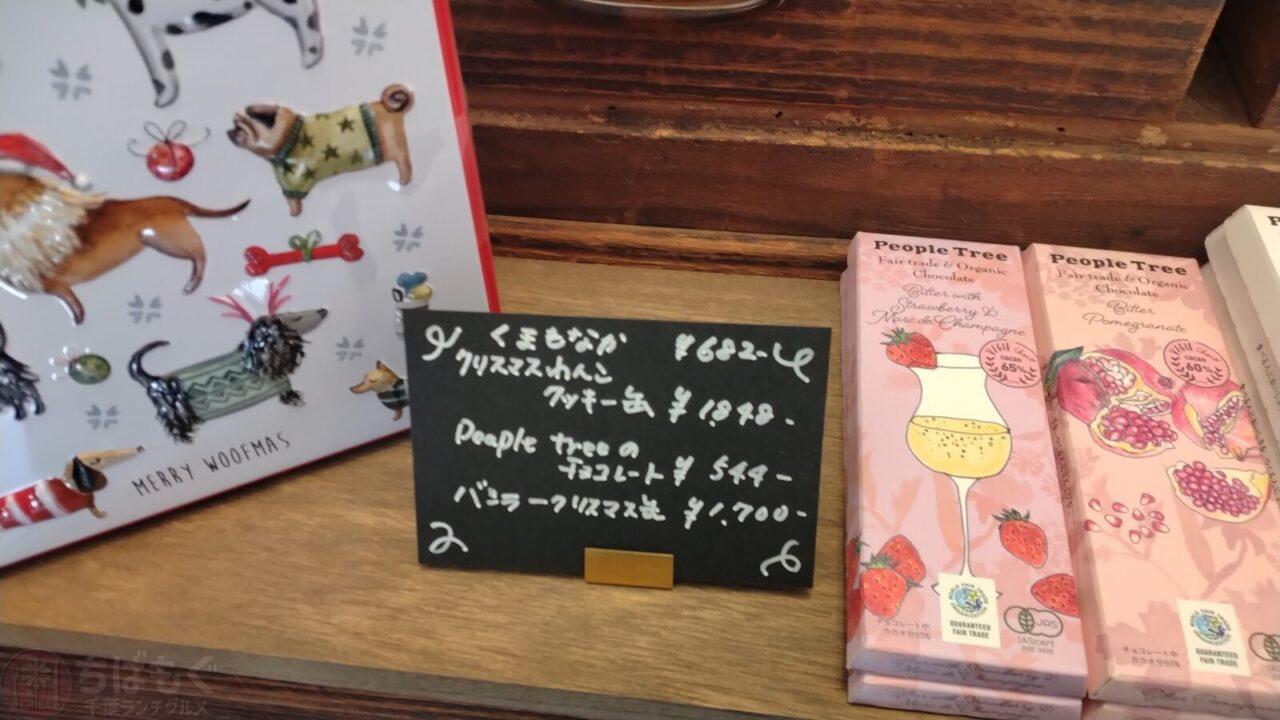 MERRY WOOFMAS
くまもなか ¥682-
クリスマスわんこ
クッキー缶 ¥1,848-
Peaple treeの
チョコレート ¥544-
バニラークリスマス缶 ¥1,700-
People Tree
Fair trade & Organic
Chocolate
Bitter with
Strawberry &
Marc de Champagne
cacao
65%
WORLD FAIR TRADE ORGANIZATION
GUARANTEED
FAIR TRADE
JAS
JAScert
チョコレート中
カカオ分65%
People Tree
Fair trade & Organic
Chocolate
Bitter
Pomegranate
cacao
60%
GUARANTEED
FAIR TRADE
チョコレート中
カカオ分60%
ちばもぐ
千葉ランチグルメ